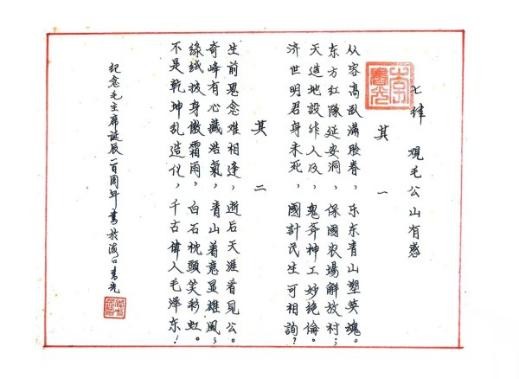 七律 觀毛公山有感
其一
从容高臥滿臉春,乐东青山塑英魂。
东方红隊延安洞,保國农場解放村;
天造地設作人,鬼斧神工妙絕倫。
济世明君身未死,國計民生可相詢?
其二
生前思念难相逢,逝后天涯看見公。
奇峰有心藏浩氣,青山着意显雄風;
綠絨披身傲霜雨,白石枕頭笑彩虹。
不是乾坤乱造仪,千古偉人毛澤东!
纪念毛主席誕辰一百周年書於海口書光